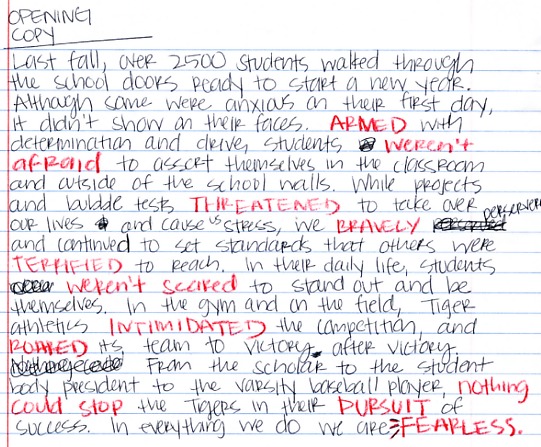 OPENING
COPY
Last fall, over 2500 students walked through
the school doors ready to start a new year.
Although some were anxious on their first day,
it didn't show on their faces. ARMED with
determination and drive, students weren't
afraid to assert themselves in the classroom
and outside of the school walls. While projects
and bubble tests THREATENED to take over
our lives and cause us stress, we BRAVELY perservered
and continued to set standards that others were
TERRIFIED to reach. In their daily life, students
weren't scared to stand out and be
themselves. In the gym and on the field, Tiger
athletics INTIMIDATED the competition, and
ROARED its team to victory after victory.
From the scholar to the student
body president to the varsity baseball player, nothing
could stop the Tigers in their PURSUIT of
success. In everything we do we are FEARLESS.